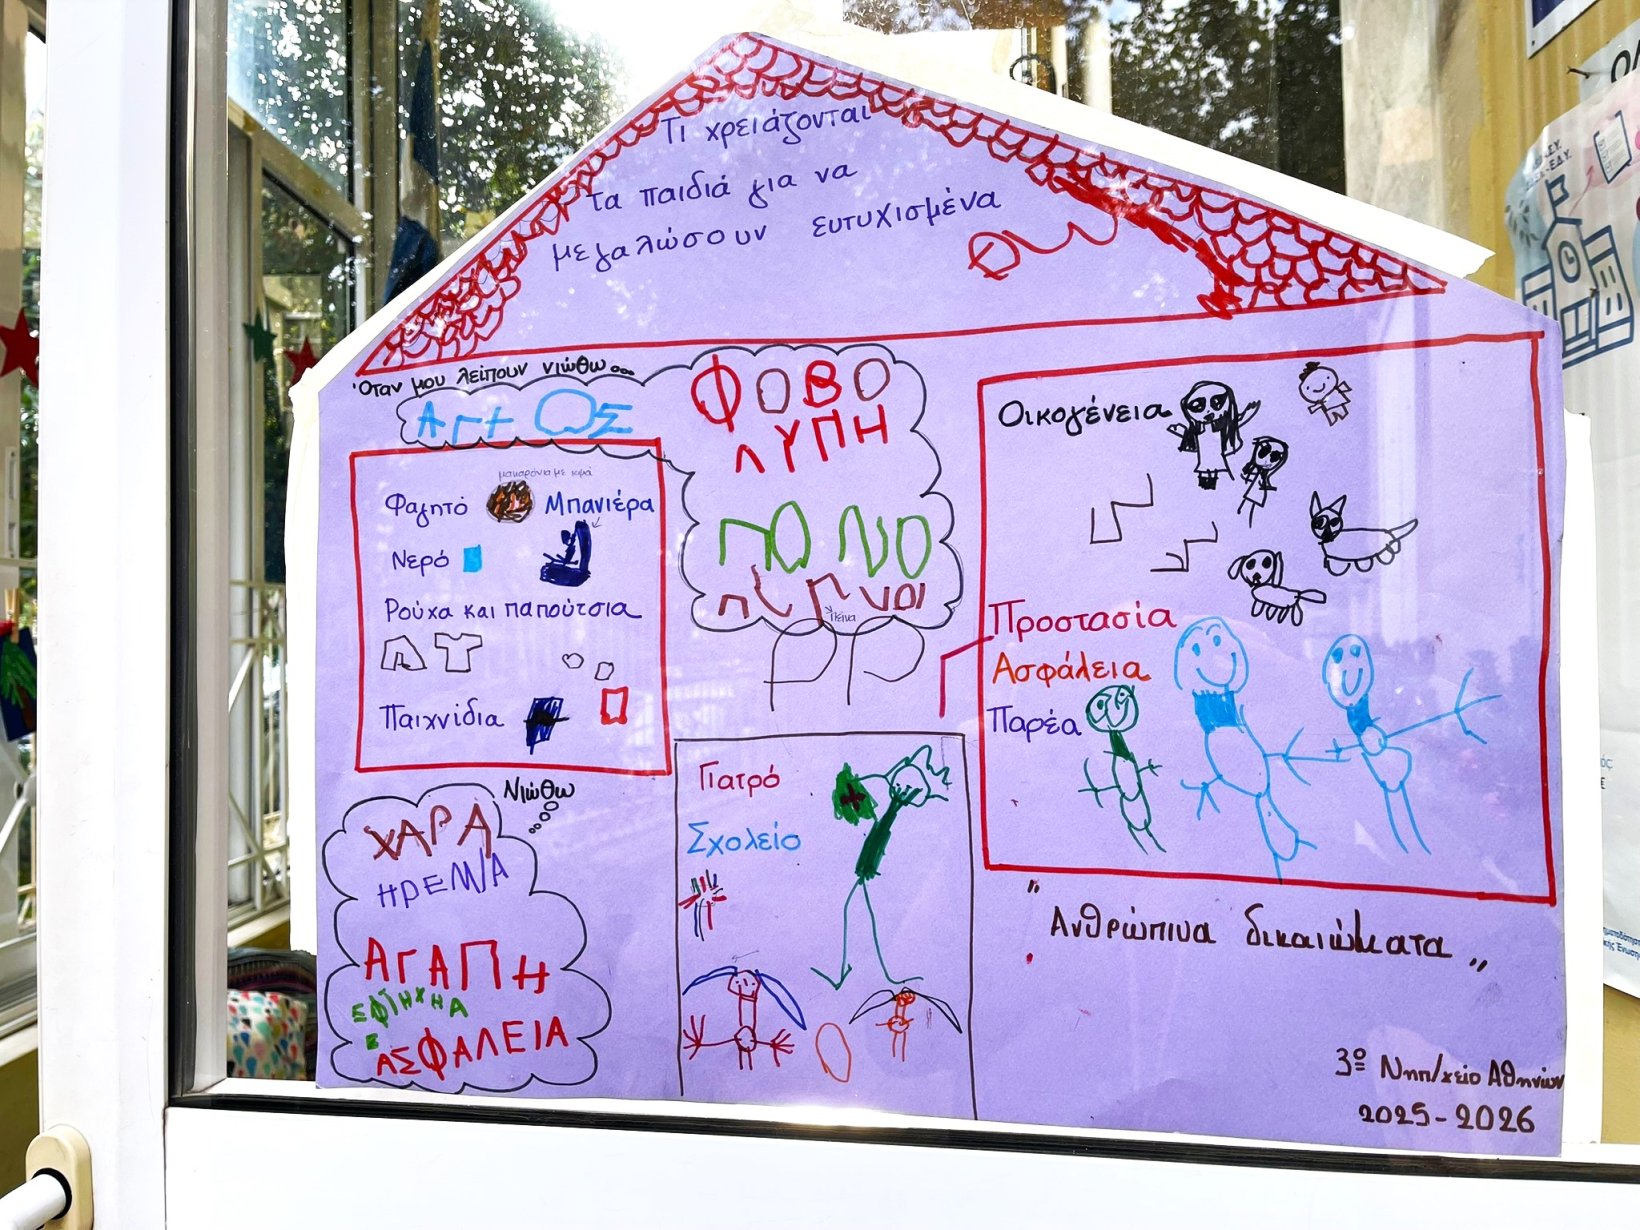 Τι χρειάζονται
τα παιδιά για να
μεγαλώσουν ευτυχισμένα
Όταν μου λείπουν νιώθω...
ΑΓΧΟΣ
ΦΟΒΟ
ΛΥΠΗ
ΠΟΝΟ
πείνα
μακαρόνια με κιμά
Φαγητό
Μπανιέρα
Νερό
Ρούχα και παπούτσια
Παιχνίδια
Οικογένεια
Προστασία
Ασφάλεια
Παρέα
Νιώθω
ΧΑΡΑ
ΗΡΕΜΙΑ
ΑΓΑΠΗ
ΑΣΦΑΛΕΙΑ
Γιατρό
Σχολείο
"Ανθρώπινα δικαιώματα"
3º Νηπ/χείο Αθηνών
2025-2026